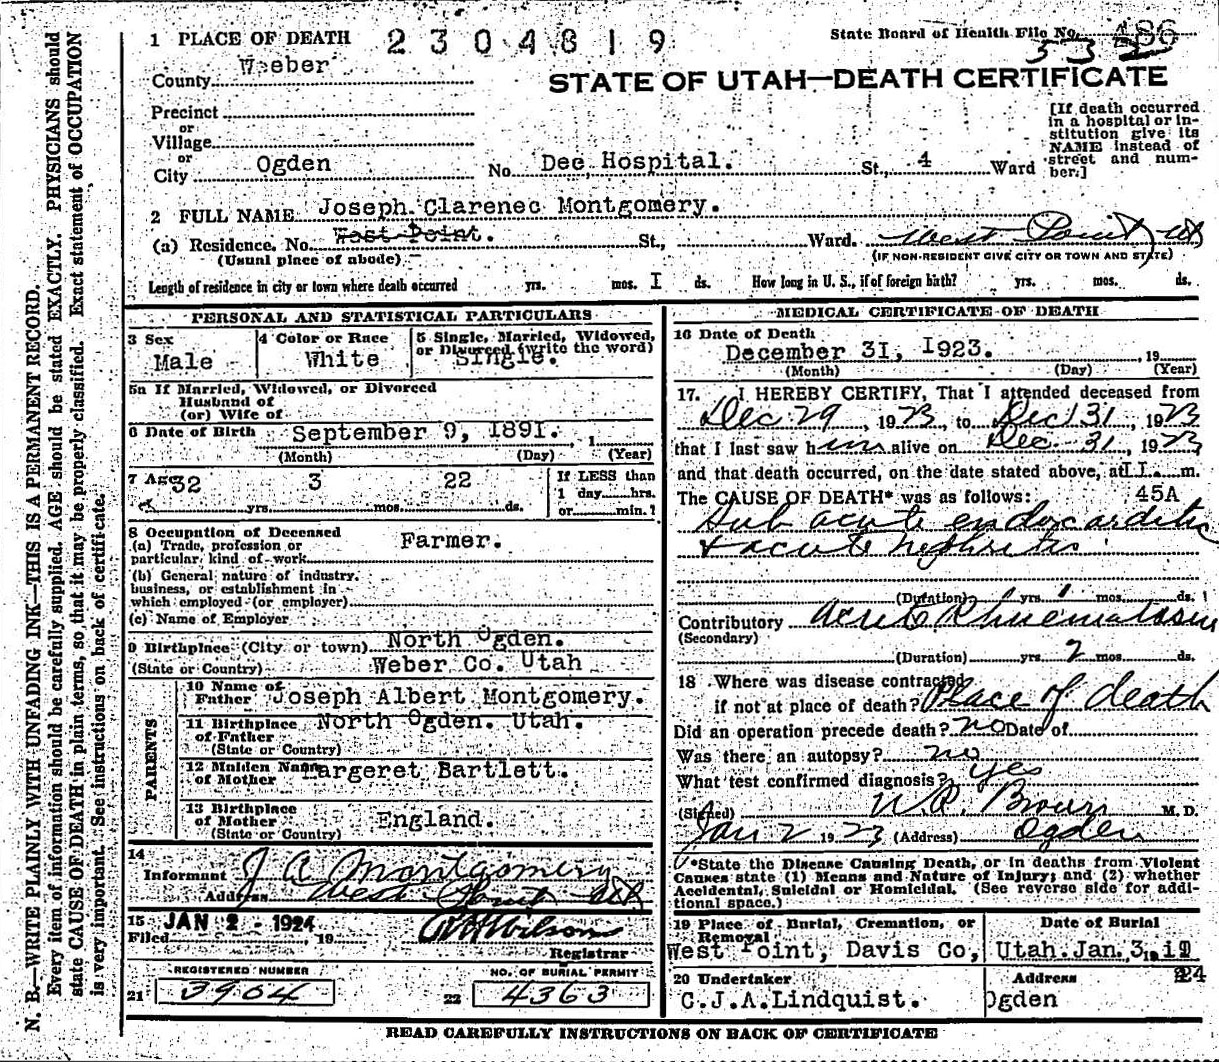 1 PLACE OF DEATH 2304819 State Board of Health File No. 486
532
County Weeber
STATE OF UTAH—DEATH CERTIFICATE
Precinct
or
Village
or
City Ogden No. Dee Hospital. St., 4 Ward
[If death occurred
in a hospital or in-
stitution give its
NAME instead of
street and num-
ber.]
2 FULL NAME Joseph Clarenec Montgomery.
(a) Residence. No. West Point. St., Ward. West Point, Ut
(Usual place of abode) (IF NON-RESIDENT GIVE CITY OR TOWN AND STATE)
Length of residence in city or town where death occurred yrs. mos. I ds. How long in U. S., if of foreign birth? yrs. mos. ds.
PERSONAL AND STATISTICAL PARTICULARS
3 Sex
Male
4 Color or Race
White
5 Single, Married, Widowed,
or Divorced (write the word)
Single.
5a If Married, Widowed, or Divorced
Husband of
(or) Wife of
6 Date of Birth September 9, 1891. , 1
(Month) (Day) (Year)
7 Age 32 yrs. 3 mos. 22 ds.
If LESS than
1 day hrs.
or min.?
8 Occupation of Deceased
(a) Trade, profession or
particular kind of work Farmer.
(b) General nature of industry.
business, or establishment in
which employed (or employer)
(c) Name of Employer
9 Birthplace (City or town) North Ogden.
(State or Country) Weber Co. Utah
PARENTS
10 Name of
Father Joseph Albert Montgomery.
11 Birthplace
of Father North Ogden. Utah.
(State or Country)
12 Maiden Name
of Mother Margeret Bartlett.
13 Birthplace
of Mother England.
(State or Country)
14
Informant J A Montgomery
Address West Point Utah
15 JAN 2 - 1924
Filed , 19 Wilson
Registrar
REGISTERED NUMBER
21 3904
NO. OF BURIAL PERMIT
22 4363
MEDICAL CERTIFICATE OF DEATH
16 Date of Death
December 31, 1923. , 19
(Month) (Day) (Year)
17. I HEREBY CERTIFY, That I attended deceased from
Dec 29, 1923, to Dec 31, 1923
that I last saw him alive on Dec. 31, 1923
and that death occurred, on the date stated above, at II. m.
The CAUSE OF DEATH* was as follows: 45A
Sub acute endocarditis
+ acute nephritis
(Duration) yrs. 1 mos. ds.
Contributory Acute Rhuematism
(Secondary)
(Duration) yrs. 2 mos. ds.
18 Where was disease contracted
if not at place of death? Place of death
Did an operation precede death? no Date of
Was there an autopsy? no
What test confirmed diagnosis? yes
(Signed) Brown M. D.
Jan 2 1923 (Address) Ogden
*State the Disease Causing Death, or in deaths from Violent
Causes state (1) Means and Nature of Injury; and (2) whether
Accidental, Suicidal or Homicidal. (See reverse side for addi-
tional space.)
19 Place of Burial, Cremation, or
Removal
West Point, Davis Co,
Date of Burial
Utah. Jan. 3, 19
24
20 Undertaker
C.J.A.Lindquist.
Address
Ogden
READ CAREFULLY INSTRUCTIONS ON BACK OF CERTIFICATE
N. B.—WRITE PLAINLY WITH UNFADING INK—THIS IS A PERMANENT RECORD.
Every item of information should be carefully supplied. AGE should be stated EXACTLY. PHYSICIANS should
state CAUSE OF DEATH in plain terms, so that it may be properly classified. Exact statement of OCCUPATION
is very important. See instructions on back of certificate.